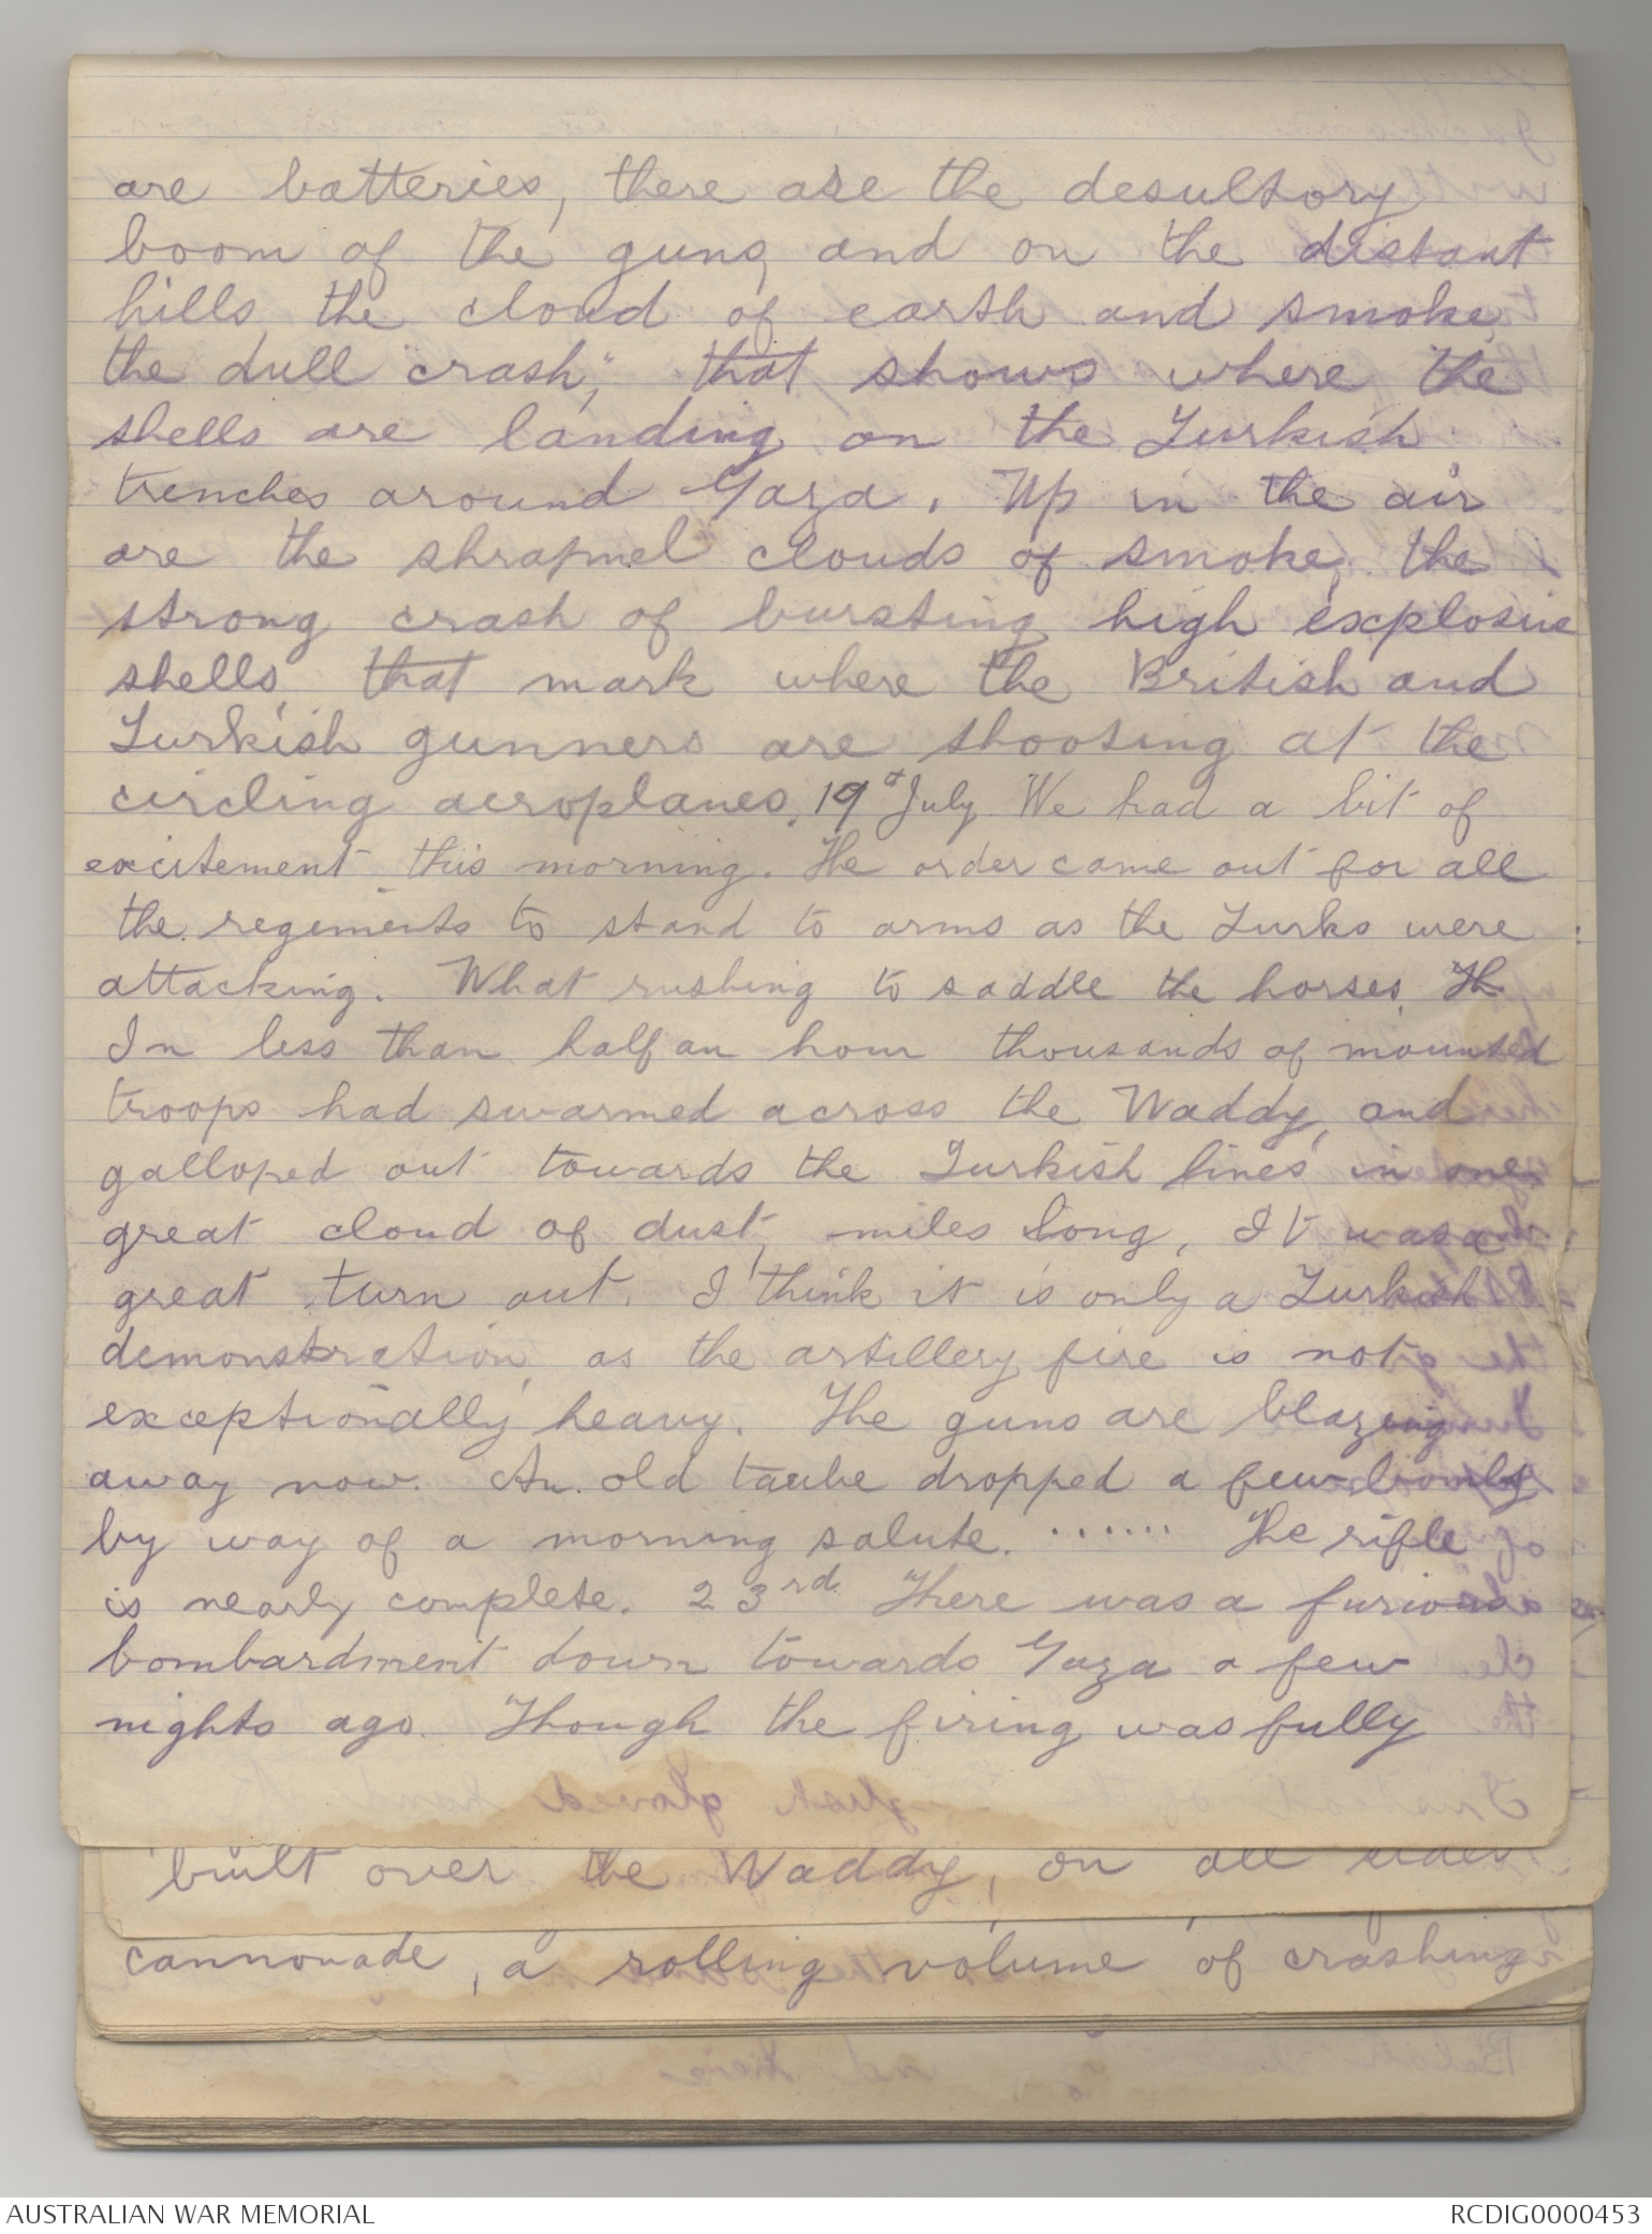 are batteries, there are the desultory
boom of the guns, and on the distant
hills, the cloud of earth and smoke,
the dull "crash", that shows where the
shells are landing on the Turkish
trenches around Gaza. Up in the air
are the shrapnel clouds of smoke, the
strong crash of bursting high explosive
shells, that mark where the British and
Turkish gunners are shooting at the
circling aeroplanes. 19th July We had a bit of
excitement this morning. The order came out for all
the regements to stand to arms as the Turks were
attacking. What rushing to saddle the horses. Th
In less than half an hour thousands of mounted
troops had swarmed across the Waddy, and
galloped out towards the Turkish lines in one
great cloud of dust, miles long, It was a
great turn out. I think it is only a Turkish
demonstration, as the artillery fire is not
exceptionally heavy. The guns are blazing
away now. An old taube dropped a few bombs
by way of a morning salute. ....... The rifle
is nearly complete. 23rd There was a furious
bombardment down towards Gaza a few
nights ago. Though the firing was fully
built over the Waddy, on all sides
cannonade, a rolling volume of crashing
AUSTRALIAN WAR MEMORIAL
RCDIG0000453